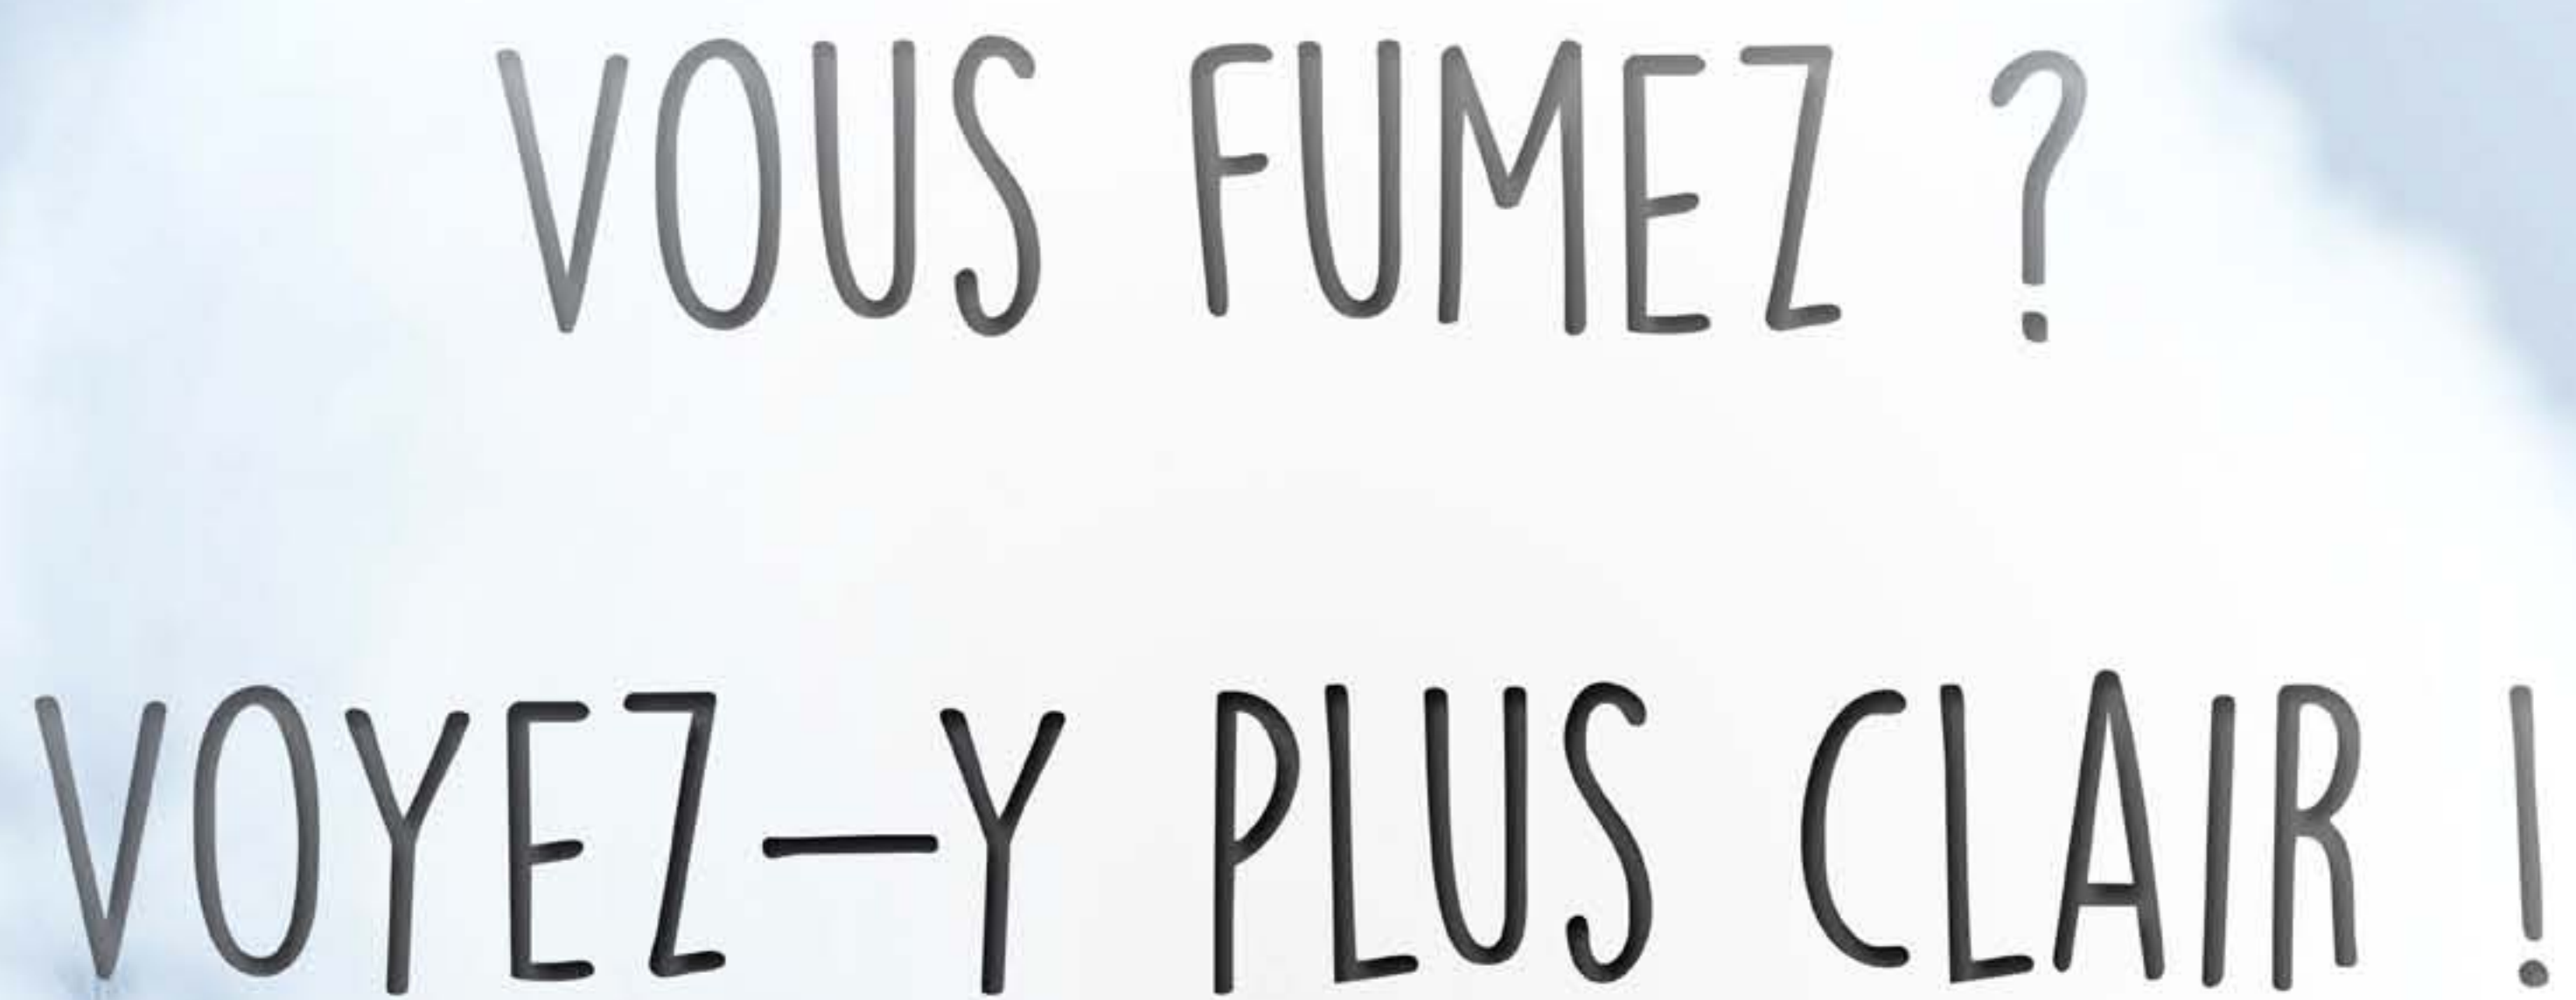 VOUS FUMEZ ?
VOYEZ-Y PLUS CLAIR !